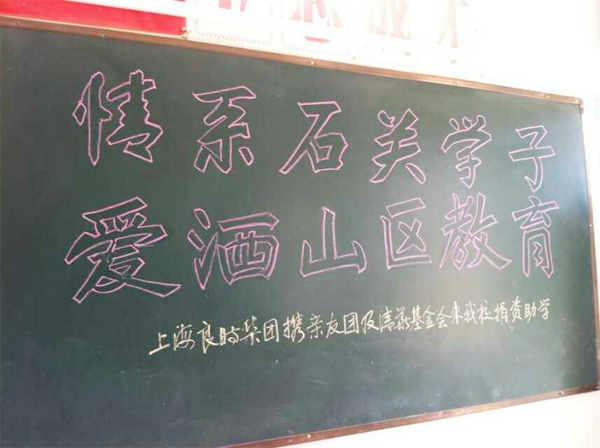 情系石关学子
爱洒山区教育
上海良时集团携亲友团及清源基金会来我校捐资助学